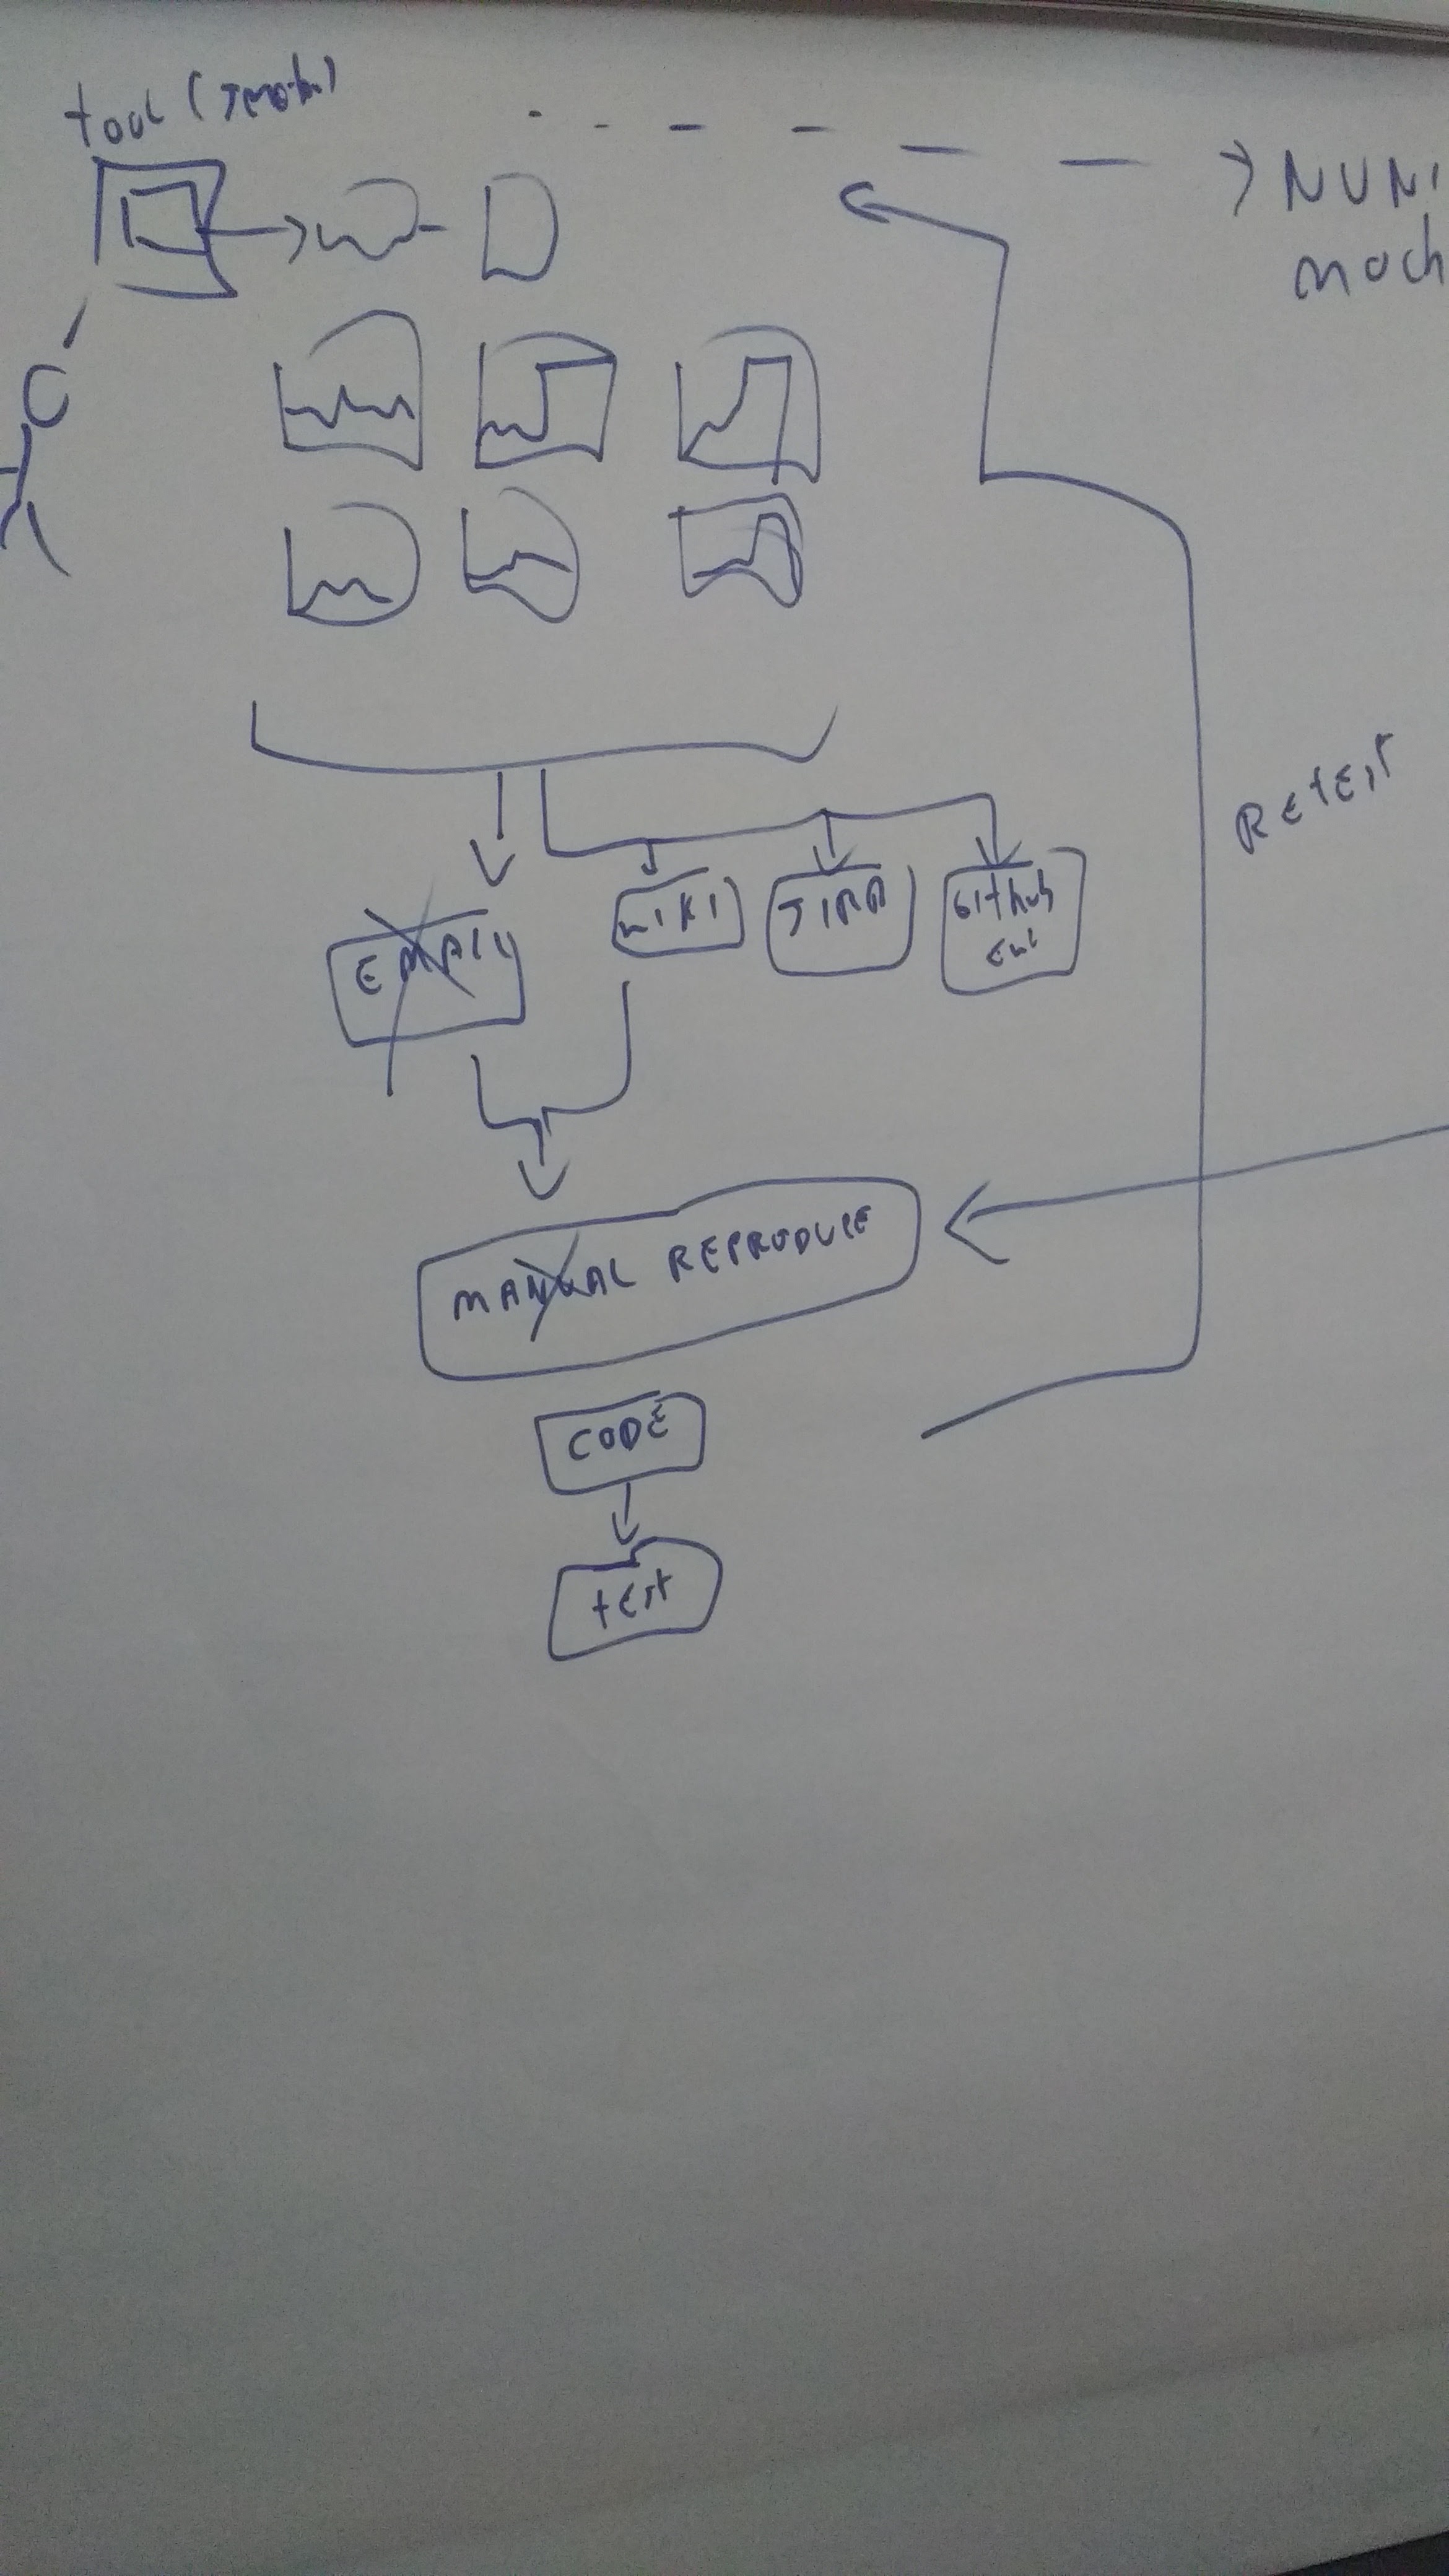 tool (
NUNI
mach
RETEST
EMAIL
WIKI
JIRA
GitHub
MANUAL REPRODUCE
CODE
test